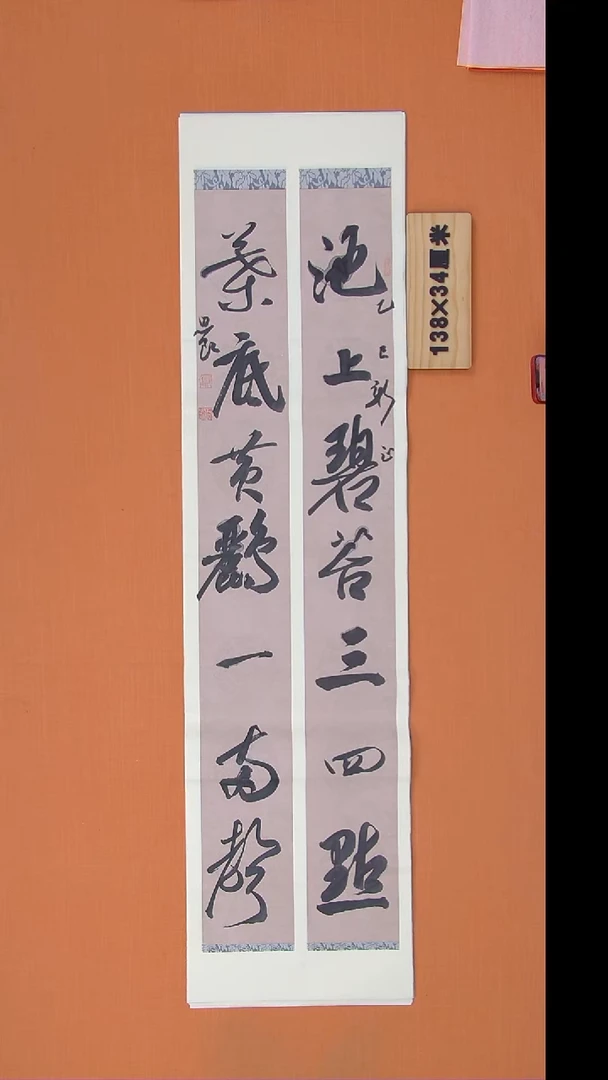 池上碧苔三四點
乙巳新
葉底黄鸝一兩聲
138×34厘米